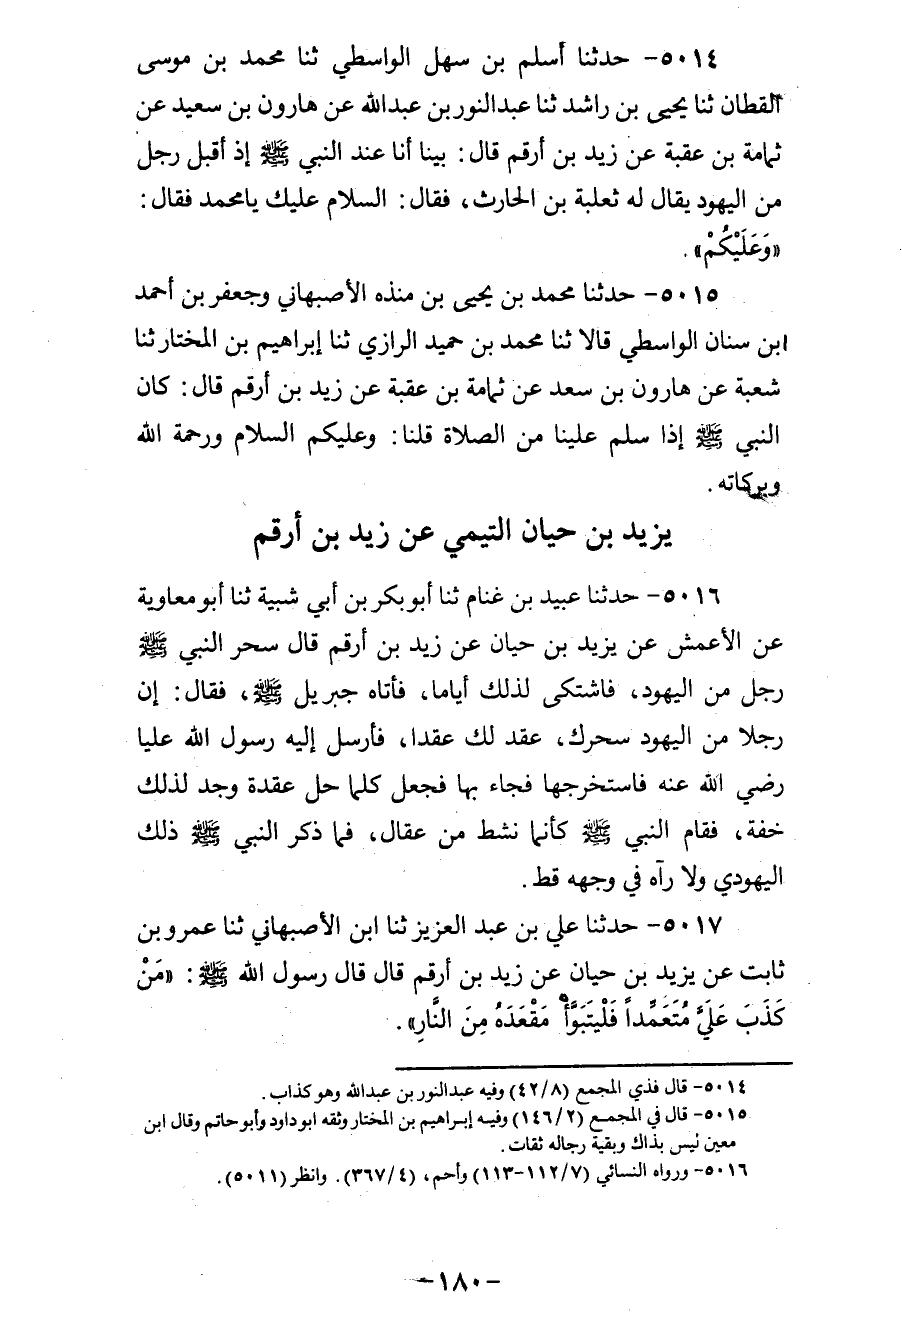 ٥٠١٤- حدثنا أسلم بن سهل الواسطي ثنا محمد بن موسى
القطان ثنا يحيى بن راشد ثنا عبدالنور بن عبدالله عن هارون بن سعيد عن
ثمامة بن عقبة عن زيد بن أرقم قال: بينا أنا عند النبي ﷺ إذ أقبل رجل
من اليهود يقال له ثعلبة بن الحارث، فقال: السلام عليك يامحمد فقال:
«وَعَلَيْكُمْ».
٥٠١٥- حدثنا محمد بن يحيى بن منذه الأصبهاني وجعفر بن أحمد
ابن سنان الواسطي قالا ثنا محمد بن حميد الرازي ثنا إبراهيم بن المختار ثنا
شعبة عن هارون بن سعد عن ثمامة بن عقبة عن زيد بن أرقم قال: كان
النبي ﷺ إذا سلم علينا من الصلاة قلنا: وعليكم السلام ورحمة الله
وبركاته.
يزيد بن حيان التيمي عن زيد بن أرقم
٥٠١٦- حدثنا عبيد بن غنام ثنا أبوبكر بن أبي شبية ثنا أبو معاوية
عن الأعمش عن يزيد بن حيان عن زيد بن أرقم قال سحر النبي ﷺ
رجل من اليهود، فاشتكى لذلك أياما، فأتاه جبريل ﷺ، فقال: إن
رجلا من اليهود سحرك، عقد لك عقدا، فأرسل إليه رسول الله عليا
رضي الله عنه فاستخرجها فجاء بها فجعل كلما حل عقدة وجد لذلك
خفة، فقام النبي ﷺ كأنما نشط من عقال، فما ذكر النبي ﷺ ذلك
اليهودي ولا رآه في وجهه قط.
٥٠١٧- حدثنا علي بن عبد العزيز ثنا ابن الأصبهاني ثنا عمرو بن
ثابت عن يزيد بن حيان عن زيد بن أرقم قال قال رسول الله ﷺ: «مَنْ
كَذَبَ عَلَيَّ مُتَعَمِّداً فَلْيَتَبَوَّأْ مَقْعَدَهُ مِنَ النَّارِ».
٥٠١٤- قال فذي المجمع (٤٢/٨) وفيه عبدالنور بن عبدالله وهو كذاب.
٥٠١٥- قال في المجمع (١٤٦/٢) وفيه إبراهيم بن المختار وثقه ابوداود وأبو حاتم وقال ابن
معين ليس بذاك وبقية رجاله ثقات.
٥٠١٦- ورواه النسائي (١١٢/٧-١١٣) وأحم، (٣٦٧/٤). وانظر (٥٠١١).
-١٨٠-